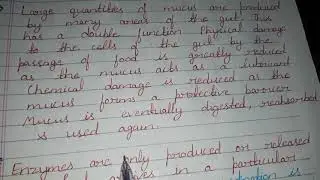 Large quantities of mucus are produced
by many areas of the gut. This
has a double function. Physical damage
to the cells of the gut by the
passage of food is greatly reduced
as the mucus acts as a lubricant
Chemical damage is reduced as the
mucus forms a protective barrier
Mucus is eventually digested, reabsorbed
& used again.
Enzymes are only produced or released
in a particular
is